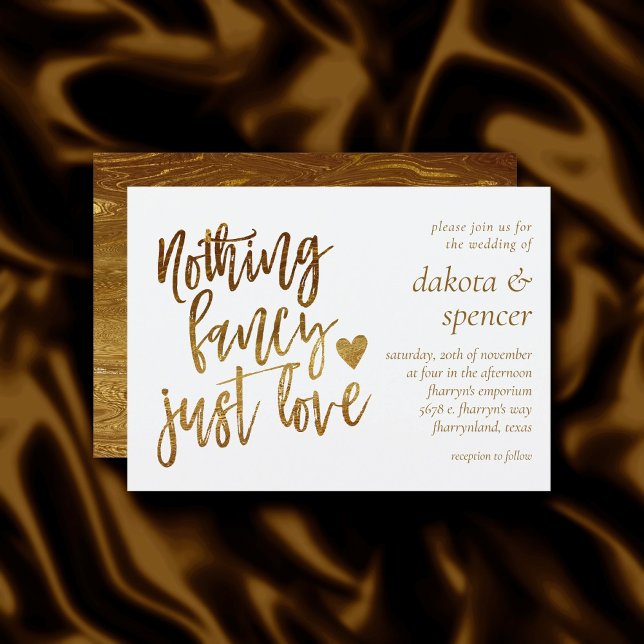 Nothing
fancy
just love
please join us for
the wedding of
dakota &
spencer
saturday, 20th of november
at four in the afternoon
fharryn's emporium
5678 e. fharryn's way
fharrynland, texas
reception to follow